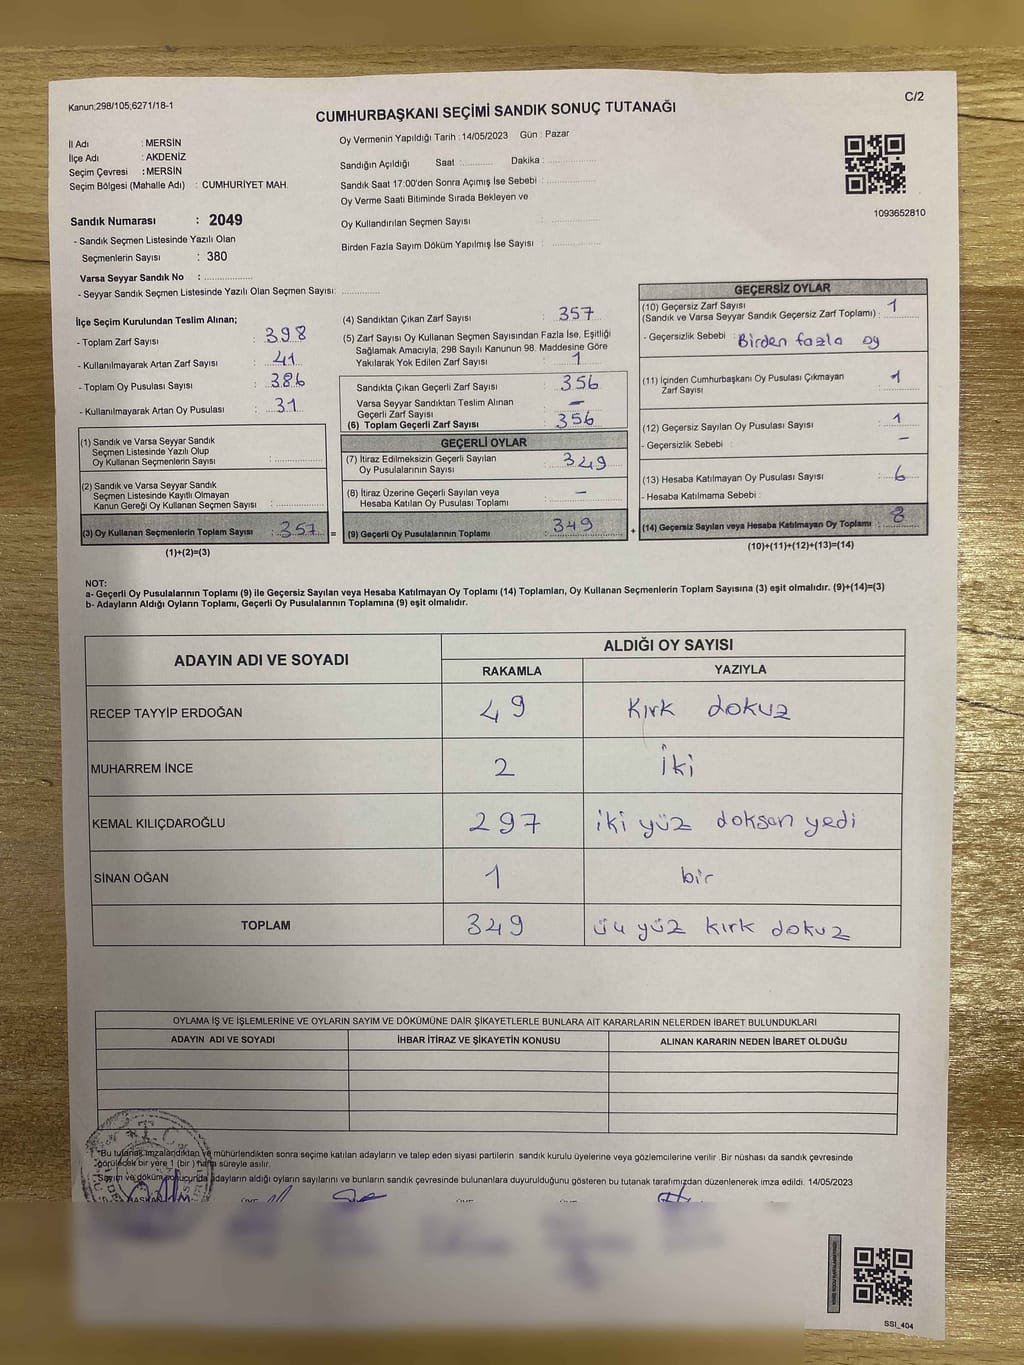 Kanun;298/105;6271/18-1
C/2
CUMHURBAŞKANI SEÇİMİ SANDIK SONUÇ TUTANAĞI
İl Adı : MERSİN
İlçe Adı : AKDENİZ
Seçim Çevresi : MERSİN
Seçim Bölgesi (Mahalle Adı) : CUMHURİYET MAH.
Sandık Numarası : 2049
- Sandık Seçmen Listesinde Yazılı Olan
Seçmenlerin Sayısı : 380
Varsa Seyyar Sandık No : ...............
- Seyyar Sandık Seçmen Listesinde Yazılı Olan Seçmen Sayısı: ............
Oy Vermenin Yapıldığı Tarih : 14/05/2023 Gün : Pazar
Sandığın Açıldığı Saat :.......... Dakika : ...............
Sandık Saat 17:00'den Sonra Açımış İse Sebebi : ...............
Oy Verme Saati Bitiminde Sırada Bekleyen ve
Oy Kullandırılan Seçmen Sayısı : ...............
Birden Fazla Sayım Döküm Yapılmış İse Sayısı : ...............
1093652810
İlçe Seçim Kurulundan Teslim Alınan;
- Toplam Zarf Sayısı : 398
- Kullanılmayarak Artan Zarf Sayısı : 41
- Toplam Oy Pusulası Sayısı : 386
- Kullanılmayarak Artan Oy Pusulası : 31
(1) Sandık ve Varsa Seyyar Sandık
Seçmen Listesinde Yazılı Olup
Oy Kullanan Seçmenlerin Sayısı : ...............
(2) Sandık ve Varsa Seyyar Sandık
Seçmen Listesinde Kayıtlı Olmayan
Kanun Gereği Oy Kullanan Seçmen Sayısı : ...............
(3) Oy Kullanan Seçmenlerin Toplam Sayısı : 357 =
(1)+(2)=(3)
(4) Sandıktan Çıkan Zarf Sayısı : 357
(5) Zarf Sayısı Oy Kullanan Seçmen Sayısından Fazla İse, Eşitliği
Sağlamak Amacıyla, 298 Sayılı Kanunun 98. Maddesine Göre
Yakılarak Yok Edilen Zarf Sayısı : 1
Sandıkta Çıkan Geçerli Zarf Sayısı : 356
Varsa Seyyar Sandıktan Teslim Alınan
Geçerli Zarf Sayısı : –
(6) Toplam Geçerli Zarf Sayısı : 356
GEÇERLİ OYLAR
(7) İtiraz Edilmeksizin Geçerli Sayılan
Oy Pusulalarının Sayısı : 349
(8) İtiraz Üzerine Geçerli Sayılan veya
Hesaba Katılan Oy Pusulası Toplamı : –
(9) Geçerli Oy Pusulalarının Toplamı : 349 +
GEÇERSİZ OYLAR
(10) Geçersiz Zarf Sayısı
(Sandık ve Varsa Seyyar Sandık Geçersiz Zarf Toplamı) : 1
- Geçersizlik Sebebi : Birden fazla oy
(11) İçinden Cumhurbaşkanı Oy Pusulası Çıkmayan
Zarf Sayısı : 1
(12) Geçersiz Sayılan Oy Pusulası Sayısı : 1
- Geçersizlik Sebebi : –
(13) Hesaba Katılmayan Oy Pusulası Sayısı : 6
- Hesaba Katılmama Sebebi :
(14) Geçersiz Sayılan veya Hesaba Katılmayan Oy Toplamı : 8
(10)+(11)+(12)+(13)=(14)
NOT:
a- Geçerli Oy Pusulalarının Toplamı (9) ile Geçersiz Sayılan veya Hesaba Katılmayan Oy Toplamı (14) Toplamları, Oy Kullanan Seçmenlerin Toplam Sayısına (3) eşit olmalıdır. (9)+(14)=(3)
b- Adayların Aldığı Oyların Toplamı, Geçerli Oy Pusulalarının Toplamına (9) eşit olmalıdır.
ADAYIN ADI VE SOYADI
ALDIĞI OY SAYISI
RAKAMLA YAZIYLA
RECEP TAYYİP ERDOĞAN 49 Kırk dokuz
MUHARREM İNCE 2 İki
KEMAL KILIÇDAROĞLU 297 iki yüz doksan yedi
SİNAN OĞAN 1 bir
TOPLAM 349 üç yüz kırk dokuz
OYLAMA İŞ VE İŞLEMLERİNE VE OYLARIN SAYIM VE DÖKÜMÜNE DAİR ŞİKAYETLERLE BUNLARA AİT KARARLARIN NELERDEN İBARET BULUNDUKLARI
ADAYIN ADI VE SOYADI İHBAR İTİRAZ VE ŞİKAYETİN KONUSU ALINAN KARARIN NEDEN İBARET OLDUĞU
*Bu tutanak imzalandıktan ve mühürlendikten sonra seçime katılan adayların ve talep eden siyasi partilerin sandık kurulu üyelerine veya gözlemcilerine verilir .Bir nüshası da sandık çevresinde
görülecek bir yere 1 (bir ) hafta süreyle asılır.
*Sayım ve döküm sonucunda adayların aldığı oyların sayılarını ve bunların sandık çevresinde bulunanlara duyurulduğunu gösteren bu tutanak tarafımızdan düzenlenerek imza edildi. 14/05/2023
BAŞKAN
SSI_404